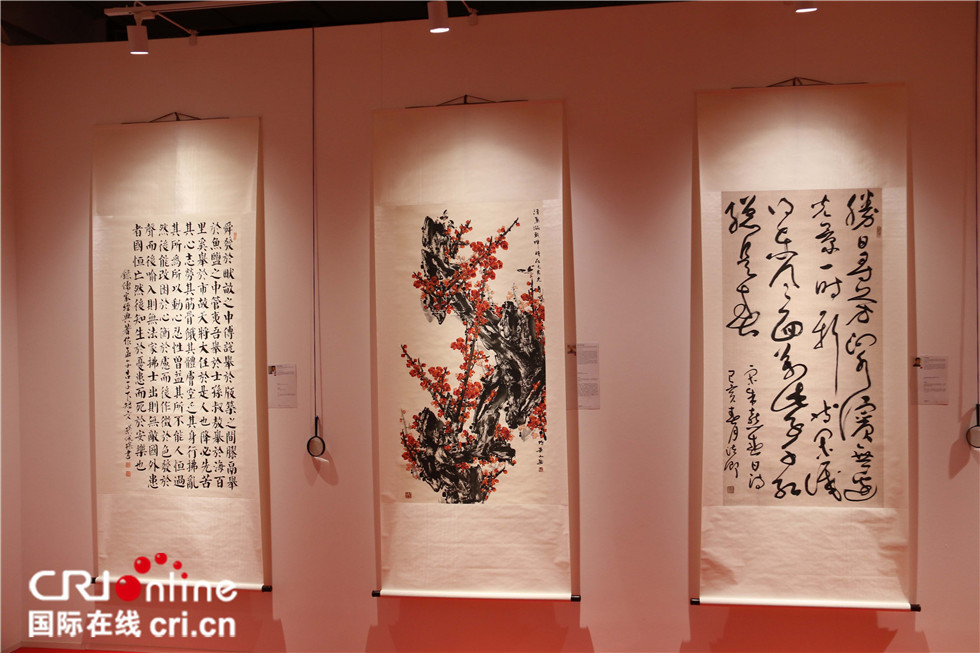 舜發於畎畝之中傅說舉於版築之間膠鬲舉
於魚鹽之中管夷吾舉於士孫叔敖舉於海百
里奚舉於市故天將大任於是人也降必先苦
其心志勞其筋骨餓其體膚空乏其身行拂亂
其所為所以動心忍性曾益其所不能人恒過
然後能改困於心衡於慮而後作徵於色發於
聲而後喻入則無法家拂士出則無敵國外患
者國恒亡然後知生於憂患而死於安樂也
錄儒家經典著作孟子
勝日尋芳泗水濱無邊
光景一時新等閑識
得東風面萬紫千紅
總是春
宋朱熹春日詩
己亥春月
CRI Online
国际在线 cri.cn